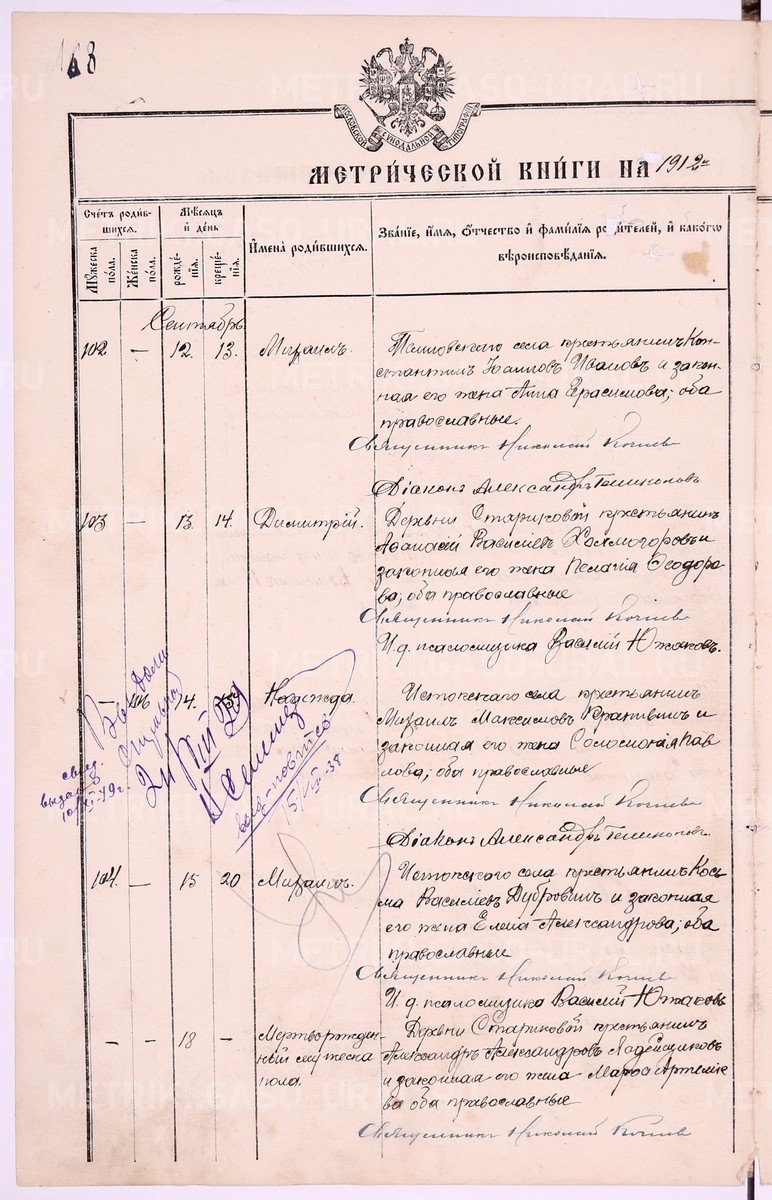 168
МОСКОВСКОЙ СѴНОДАЛЬНОЙ ТИПОГРАФІИ
МЕТРИЧЕСКОЙ КНИГИ НА 1912 й
Счетъ родившихся.
Мужеска пола.
Женска пола.
Мѣсяцъ и день
рожденія.
крещенія.
Имена родившихся.
Званіе, имя, отчество и фамилія родителей, и какого
вѣроисповѣданія.
Сентябрь
102 — 12. 13. Михаилъ.
крестьянинъ Кон-
стантинъ Іоанновъ Ивановъ и закон-
ная его жена Анна Герасимова; оба
православные.
Священникъ Николай
Діаконъ Александръ
103 — 13 14. Димитрій.
Деревни Стариковой крестьянинъ
Аѳанасій Василіевъ Холмогоровъ и
законная его жена Пелагія Ѳеодоро-
ва; оба православные
Священникъ Николай
И. д. псаломщика Василій Южаковъ.
— 14. 15 Надежда.
Истокскаго села крестьянинъ
Михаилъ Максимовъ и
законная его жена Соломонія Пав-
лова; оба православные
Священникъ Николай
Діаконъ Александръ
свид.
выдано
104. — 15 20 Михаилъ.
Истокскаго села крестьянинъ Кось-
ма Василіевъ Дубровинъ и законная
его жена Елена Александрова; оба
православные
Священникъ Николай
И. д. псаломщика Василій Южаковъ
— — 18 — Мертворжден-
ный мужеска
пола.
Деревни Стариковой крестьянинъ
Александръ Александровъ Ладейщиковъ
и законная его жена Марѳа Артеміе-
ва оба православные
Священникъ Николай